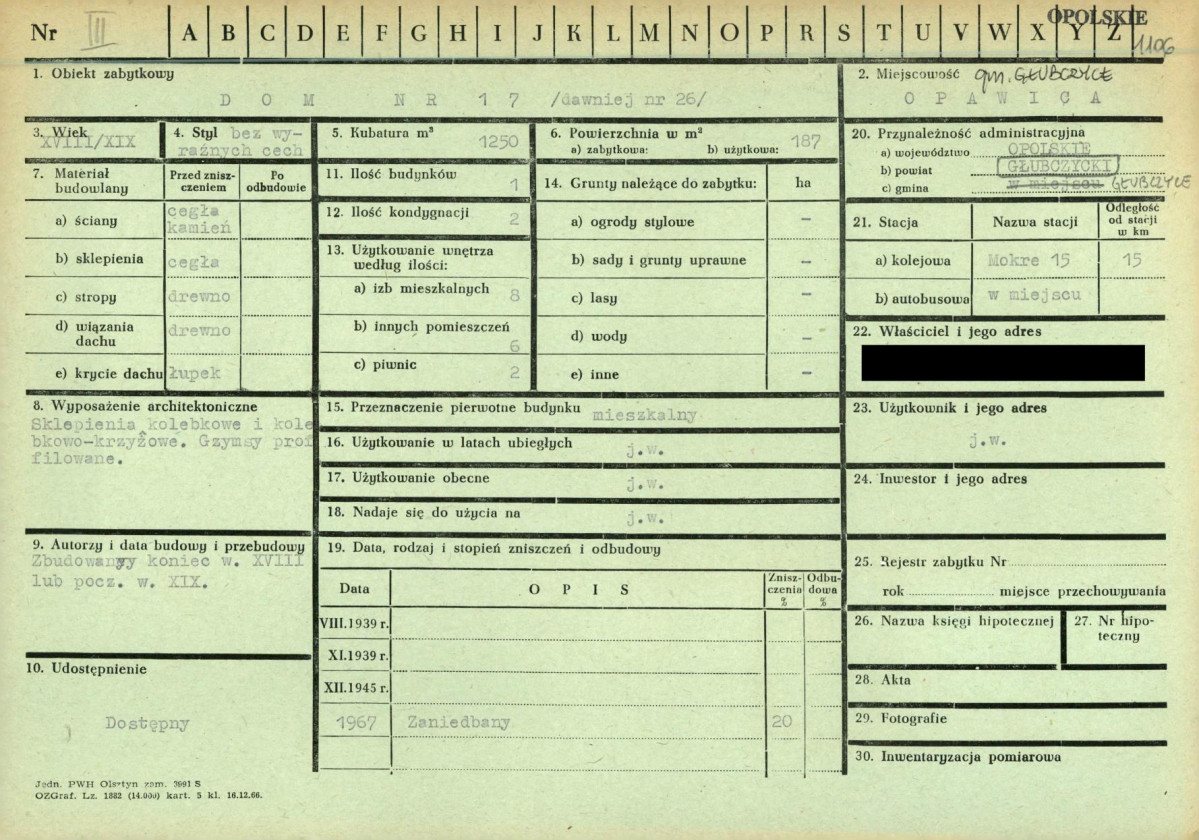 Nr III A B C D E F G H I J K L M N O P R S T U V W X Y Z
OPOLSKIE
1106
1. Obiekt zabytkowy
D O M N R 1 7 /dawniej nr 26/
2. Miejscowość gm. GŁUBCZYCE
O P A W I C A
3. Wiek
XVIII/XIX
4. Styl bez wy-
raźnych cech
5. Kubatura m³
1250
6. Powierzchnia w m²
a) zabytkowa: b) użytkowa: 187
20. Przynależność administracyjna
a) województwo OPOLSKIE
b) powiat GŁUBCZYCKI
c) gmina w miejscu GŁUBCZYCE
7. Materiał
budowlany
Przed znisz-
czeniem
Po
odbudowie
a) ściany cegła
kamień
b) sklepienia cegła
c) stropy drewno
d) wiązania
dachu
drewno
e) krycie dachu łupek
11. Ilość budynków
1
12. Ilość kondygnacji
2
13. Użytkowanie wnętrza
według ilości:
a) izb mieszkalnych 8
b) innych pomieszczeń
6
c) piwnic 2
14. Grunty należące do zabytku: ha
a) ogrody stylowe –
b) sady i grunty uprawne –
c) lasy –
d) wody –
e) inne –
21. Stacja Nazwa stacji
Odległość
od stacji
w km
a) kolejowa Mokre 15 15
b) autobusowa w miejscu
22. Właściciel i jego adres
8. Wyposażenie architektoniczne
Sklepienia kolebkowe i kole
bkowo-krzyżowe. Gzymsy prof
filowane.
15. Przeznaczenie pierwotne budynku mieszkalny
16. Użytkowanie w latach ubiegłych j.w.
17. Użytkowanie obecne j.w.
18. Nadaje się do użycia na j.w.
23. Użytkownik i jego adres
j.w.
24. Inwestor i jego adres
9. Autorzy i data budowy i przebudowy
Zbudowanyy koniec w. XVIII
lub pocz. w. XIX.
10. Udostępnienie
Dostępny
19. Data, rodzaj i stopień zniszczeń i odbudowy
Data O P I S
Znisz-
czenia
%
Odbu-
dowa
%
VIII.1939 r.
XI.1939 r.
XII.1945 r.
1967 Zaniedbany 20
25. Rejestr zabytku Nr
rok miejsce przechowywania
26. Nazwa księgi hipotecznej
27. Nr hipo-
teczny
28. Akta
29. Fotografie
30. Inwentaryzacja pomiarowa
Jedn. PWH Olsztyn zam. 3991 S
OZGraf. Lz. 1882 (14.000) kart. 5 kl. 16.12.66.